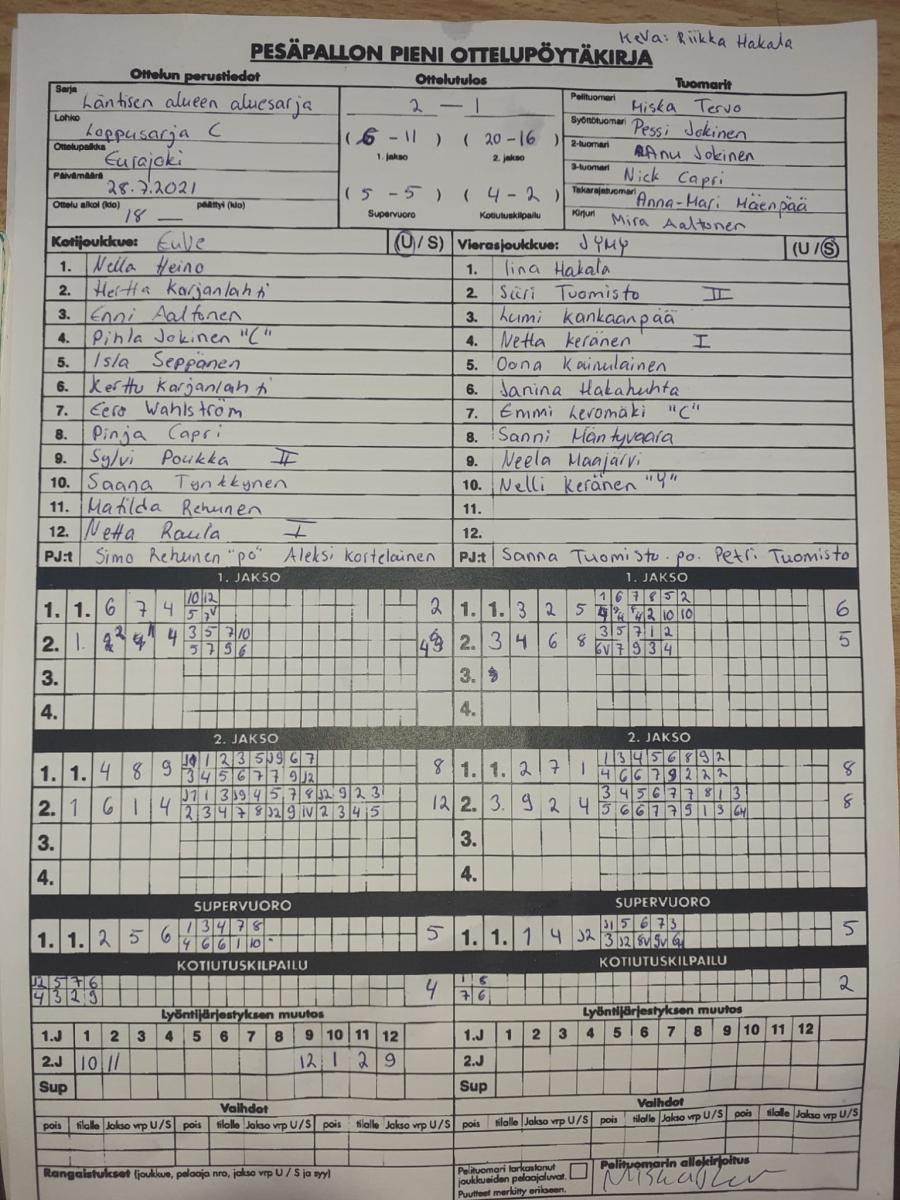 KeVa: Riikka Hakala
PESÄPALLON PIENI OTTELUPÖYTÄKIRJA
Ottelun perustiedot
Sarja Läntisen alueen aluesarja
Lohko Loppusarja C
Ottelupaikka Eurajoki
Päivämäärä 28.7.2021
Ottelu alkoi (klo) 18 — päättyi (klo)
Ottelutulos
2 — 1
( 6 - 11 ) ( 20 - 16 )
1. jakso 2. jakso
( 5 - 5 ) ( 4 - 2 )
Supervuoro Kotiutuskilpailu
Tuomarit
Pelituomari Miska Tervo
Syöttötuomari Pessi Jokinen
2-tuomari Anu Jokinen
3-tuomari Nick Capri
Takarajatuomari Anna-Mari Mäenpää
Kirjuri Mira Aaltonen
Kotijoukkue: EuVe (U / S)
1. Nella Heino
2. Hertta Karjanlahti
3. Enni Aaltonen
4. Pihla Jokinen "C"
5. Isla Seppänen
6. Kerttu Karjanlahti
7. Eero Wahlström
8. Pinja Capri
9. Sylvi Poukka II
10. Saana Tynkkynen
11. Matilda Rehunen
12. Netta Raula I
PJ:t Simo Rehunen "po" Aleksi Kortelainen
Vierasjoukkue: JYMY (U / S)
1. Iina Hakala
2. Siiri Tuomisto II
3. Lumi Kankaanpää
4. Netta Keränen I
5. Oona Kainulainen
6. Janina Hakahuhta
7. Emmi Leromäki "C"
8. Sanni Mäntyvaara
9. Neela Maajärvi
10. Nelli Keränen "Y"
11.
12.
PJ:t Sanna Tuomisto. po. Petri Tuomisto
1. JAKSO
10 12
1. 1. 6 7 4 2
5
3 5 7 10
2. 1. 4
5 7 9 6
3.
4.
1. JAKSO
1 6 7 8 5 2
1. 1. 3 2 5 6
2 10 10
3 5 7 1 2
2. 3 4 6 8 5
6V 7 9 3 4
3.
4.
2. JAKSO
1 2 3 5 J9 6 7
1. 1. 4 8 9 8
3 4 5 6 7 7 9 J2
J1 1 3 J9 4 5 7 8 J2 9 2 3
2. 1 6 1 4 12
2 3 4 7 8 J2 9 1V 2 3 4 5
3.
4.
2. JAKSO
1 3 4 5 6 8 9 2
1. 1. 2 7 1 8
4 6 6 7 9 2 2 2
3 4 5 6 7 7 8 1 3
2. 3. 9 2 4 8
5 6 6 7 7 9 1 3
3.
4.
SUPERVUORO
1 3 4 7 8
1. 1. 2 5 6 5
4 6 6 1 10
SUPERVUORO
J1 5 6 7 3
1. 1. 1 4 J2 5
3 J2 8V 9V
KOTIUTUSKILPAILU
J2 5 7 6
4 3 2 9
4
KOTIUTUSKILPAILU
1 8
7 6
2
Lyöntijärjestyksen muutos
1.J 1 2 3 4 5 6 7 8 9 10 11 12
2.J 10 11 12 1 2 9
Sup
Lyöntijärjestyksen muutos
1.J 1 2 3 4 5 6 7 8 9 10 11 12
2.J
Sup
Vaihdot
pois tilalle Jakso vrp U / S pois tilalle Jakso vrp U / S pois tilalle Jakso vrp U / S
Vaihdot
pois tilalle Jakso vrp U / S pois tilalle Jakso vrp U / S pois tilalle Jakso vrp U / S
Rangaistukset (joukkue, pelaaja nro, jakso vrp U / S ja syy)
Pelituomari tarkastanut
joukkueiden pelaajaluvat.
Puutteet merkitty erikseen.
Pelituomarin allekirjoitus